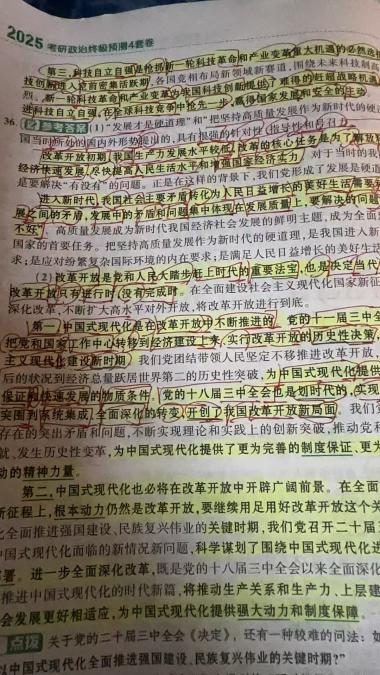 2025 考研政治终极预测4套卷
第三,科技自立自强是抢抓新一轮科技革命和产业变革重大机遇的必然选
技创新进入空前密集活跃期,各国竞相布局新领域新赛道,围绕未来科技制高
烈。新一轮科技革命和产业变革为我国科技创新提供了难得的赶超战略机遇
进科技自立自强,在全球科技竞争中抢先一步,赢得国家发展和安全的主动
36. 参考答案 (1)“发展才是硬道理”和“把坚持高质量发展作为新时代的硬道
国当时所处的国内外形势提出的,具有很强的针对性、指导性和号召力。
改革开放初期,我国生产力发展水平较低,改革的核心任务是为了解放
经济快速发展,尽快提高人民生活水平和增强国家经济实力。对于当时的我
是要解决“有没有”的问题。正是在这样的背景下,我们党形成了发展是硬道
进入新时代,我国社会主要矛盾转化为人民日益增长的美好生活需要
展之间的矛盾,发展中的矛盾和问题集中体现在发展质量上,要解决的问题
不好”。高质量发展成为新时代我国经济社会发展的鲜明主题,成为全面
国家的首要任务。把坚持高质量发展作为新时代的硬道理,是我国进入新
求;是应对纷繁复杂国际环境的内在要求;是满足人民日益增长的美好生活
(2)改革开放是党和人民大踏步赶上时代的重要法宝,也是决定当代
改革开放只有进行时、没有完成时。在全面建设社会主义现代化国家新征
深化改革,不断扩大高水平对外开放,将改革开放进行到底。
第一,中国式现代化是在改革开放中不断推进的。党的十一届三中全
把党和国家工作中心转移到经济建设上来、实行改革开放的历史性决策,
主义现代化建设新时期。我们党团结带领人民坚定不移推进改革开放,
后的状况到经济总量跃居世界第二的历史性突破,为中国式现代化提供
保证和快速发展的物质条件。党的十八届三中全会也是划时代的,实现
突围到系统集成、全面深化的转变,开创了我国改革开放新局面。我们
存在的突出矛盾和问题,不断实现理论和实践上的创新突破,推动党和
就、发生历史性变革,为中国式现代化提供了更为完善的制度保证、更为
动的精神力量。
第二,中国式现代化也必将在改革开放中开辟广阔前景。在全面
新征程上,根本动力仍然是改革开放,要继续用足用好改革开放这个关
化全面推进强国建设、民族复兴伟业的关键时期,我们党召开二十届三
中国式现代化面临的新情况新问题,科学谋划了围绕中国式现代化进
部署。进一步全面深化改革,既是党的十八届三中全会以来全面深化
推进中国式现代化的时代新篇,将推动生产关系和生产力、上层建
会发展更好相适应,为中国式现代化提供强大动力和制度保障。
点拨 关于党的二十届三中全会《决定》,还有一种较难的问法:如
以中国式现代化全面推进强国建设、民族复兴伟业的关键时期?”